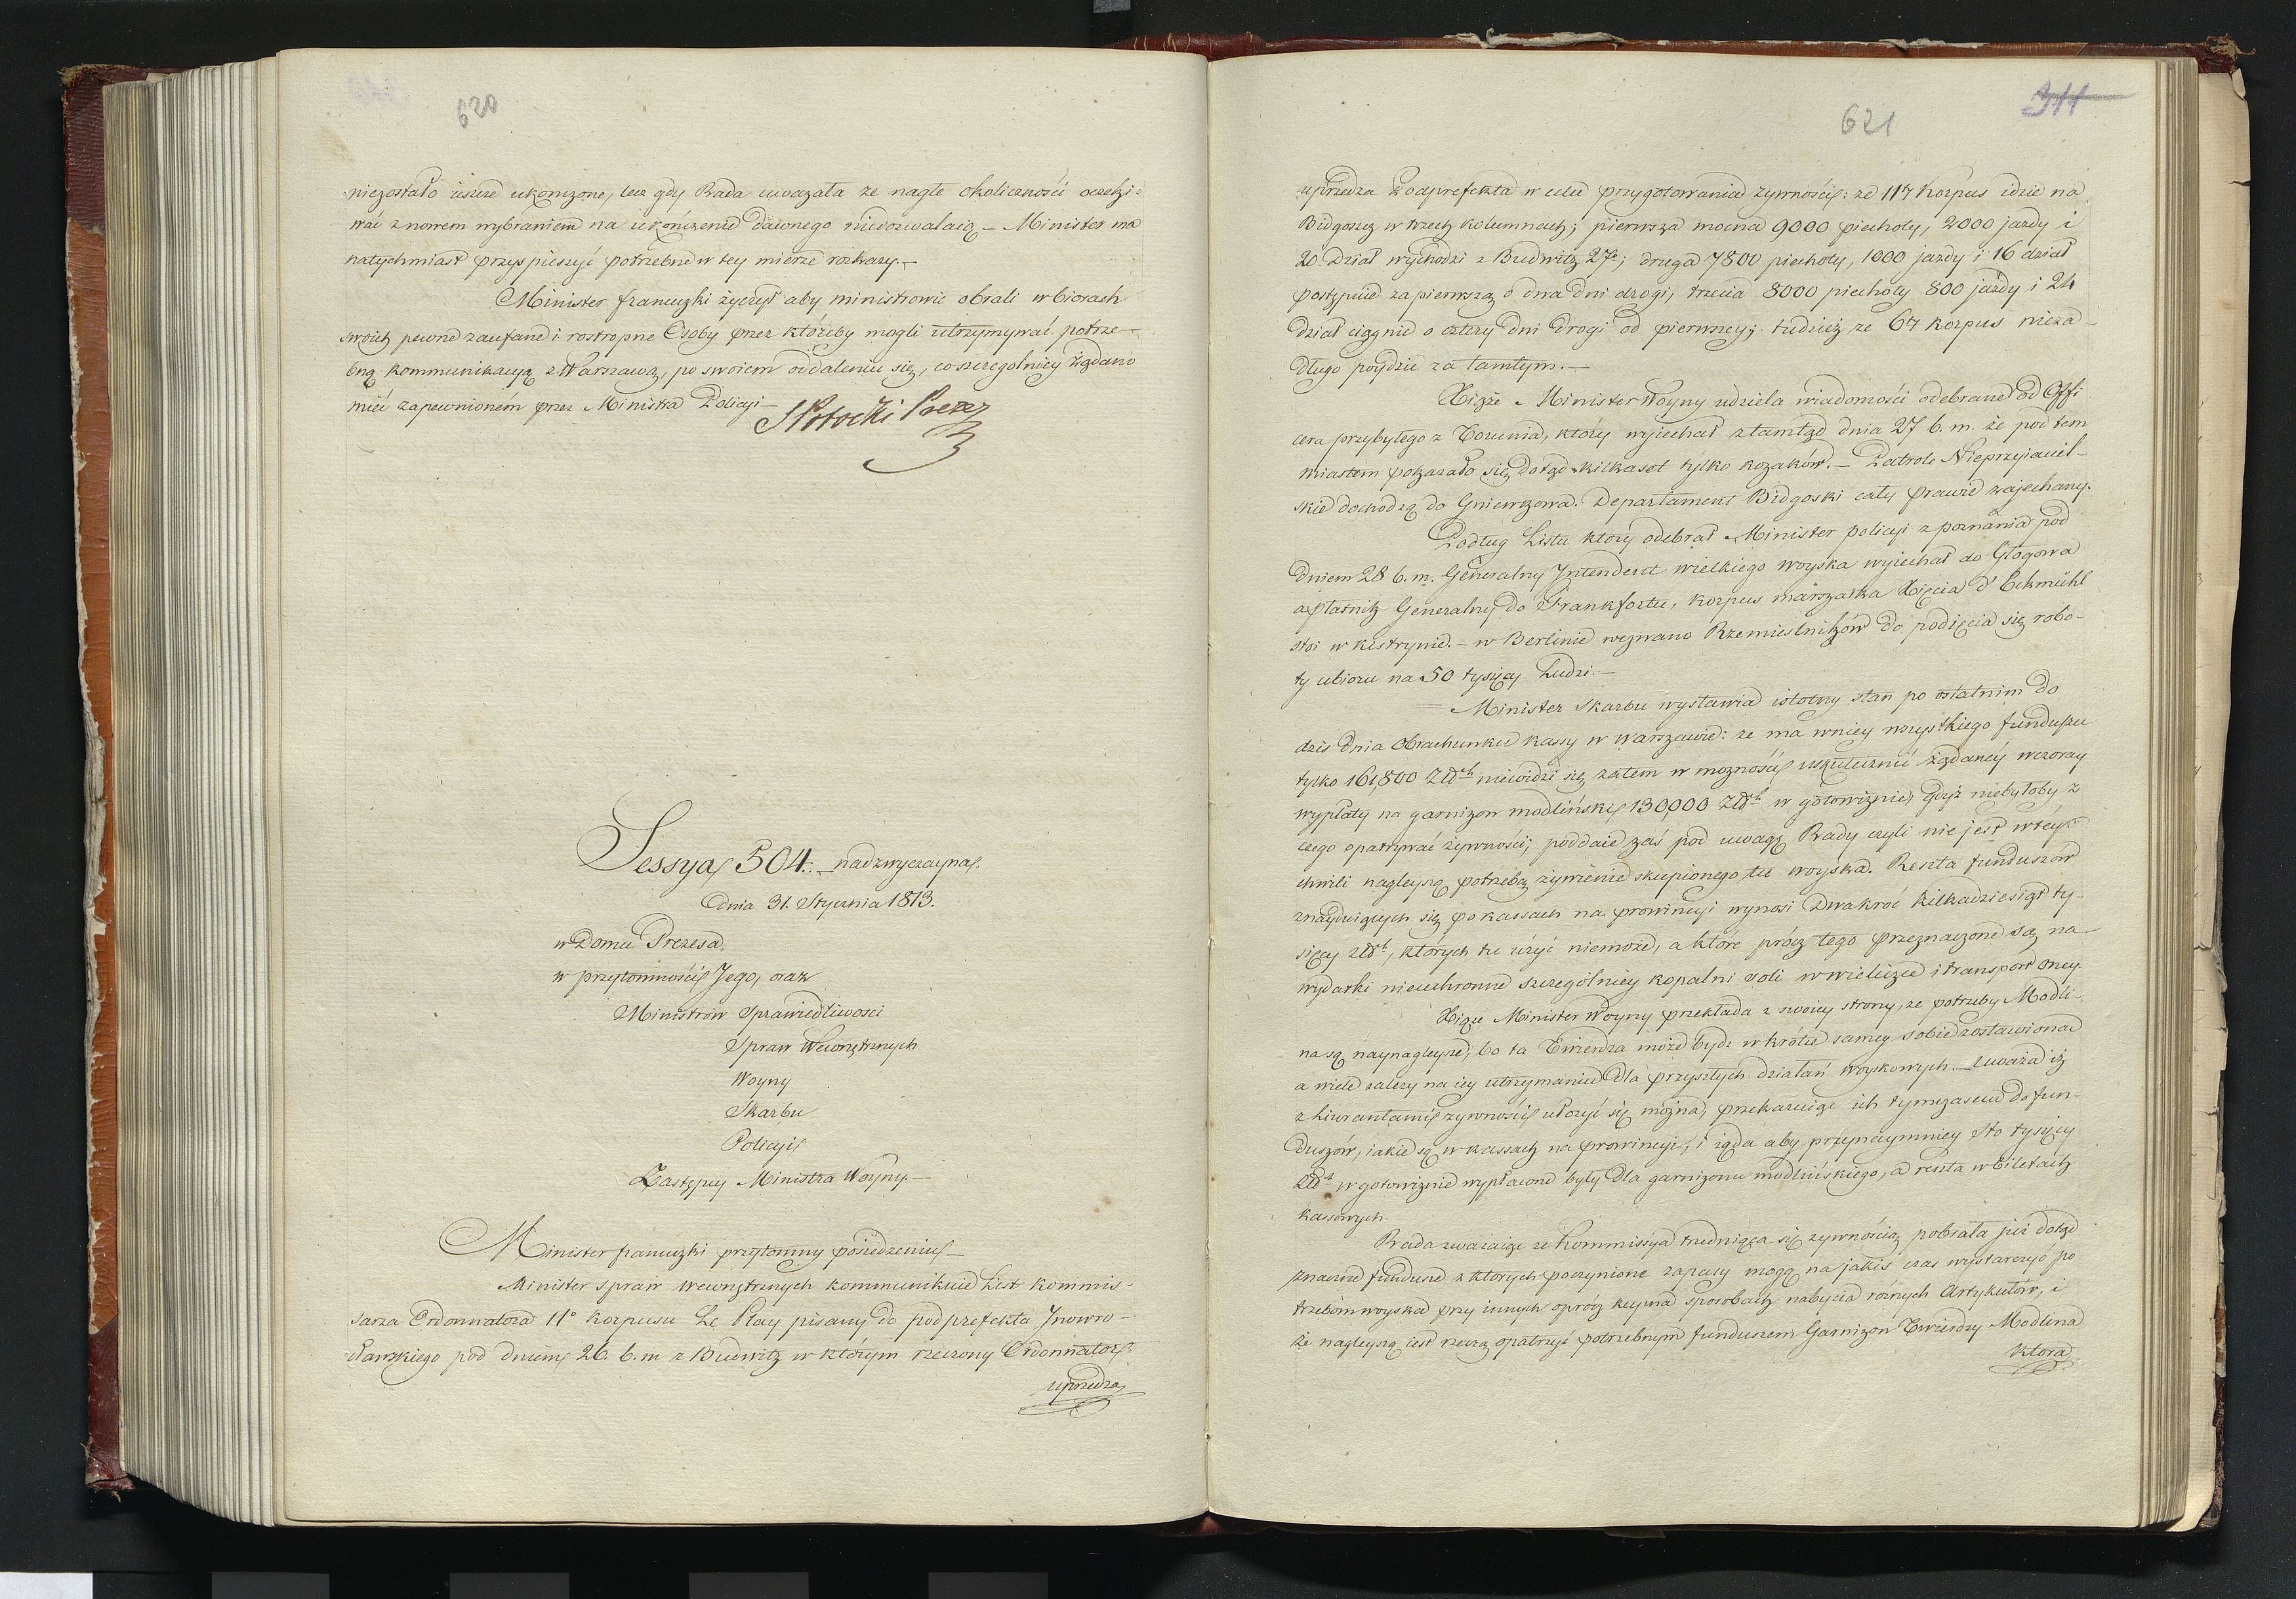 620
niezostało ieszcze ukonczone, lecz gdy Rada uważała ze nagłe okoliczności oczeki=
wać z nowem wybraniem na ukończenie dawnego niedozwalaią – Minister ma
natychmiast przyspieszyć potrzebne w tey mierze rozkazy. –
Minister francuzki życzył aby ministrowie obrali w biorach
swoich pewne zaufane i roztropne Osoby przez któreby mogli utrzymywać potrze–
bną kommunikacyą z Warszawą, po swoiem oddaleniu się, co szczegolniey żądano
mieć zapewnioném przez Ministra Policyi –
SPotocki Prezes
Sessya 504. nadzwyczayna.
Dnia 31. Stycznia 1813.
w Domu Prezesa.
w przytomności Jego, oraz
Ministrów Sprawiedliwosci
Spraw Wewnętrznych
Woyny
Skarbu
Policyi
Zastępcy Ministra Woyny. –
Minister francuzki przytomny posiedzeniu –
Minister spraw wewnętrznych kommunikuie List kommis-
sarza Ordonnatora 11º Korpusu Le Play pisany do podprefekta Jnowro-
cławskiego pod dniem 26. b. m z Budwitz w którym rzeczony Ordonnator
uprzedza
311
621
uprzedza Podprefekta w celu przygotowania zywności: ze 11ty Korpus idzie na
Bidgoszcz w trzech kolumnach; pierwsza mocna 9000 piechoty, 2000 jazdy i
20 Dział wychodzi z Budwitz 27º; druga 7800 piechoty, 1000 jazdy i 16 dział
postępuie za pierwszą o dwa dni drogi, trzecia 8000 piechoty 800 jazdy i 24
dział ciągnie o cztery dni drogi od pierwszey; tudzież ze 6ty korpus nieza-
długo poydzie za tamtym. –
Xiąże Minister Woyny udziela wiadomości odebrane od Offi
cera przybyłego z Torunia, który wyiechał ztamtąd dnia 27 b. m. że pod tem
miastem pokazało się dotąd kilkaset tylko kozaków. – Patrole Nieprzyiaciel-
skie dochodzą do Gniewkowa. Departament Bidgoski cały prawie zajechany.
Podług Listu który odebrał Minister policyi z poznania pod
Dniem 28 b. m. Generalny Jntendent wielkiego woyska wyiechał do Głogowa
a płatnik Generalny do Frankfortu, korpus marszałka Xięcia d'Eckmühl
stoi w kistrynie. – w Berlinie wezwano Rzemieslników do podięcia się robo-
ty ubioru na 50 tysięcy Ludzi. –
Minister Skarbu wystawia istotny stan po ostatnim do
dzis dnia Obrachunku kassy w Warszawie: ze ma w niey wszystkiego funduszu
tylko 161,800 Złłch niewidzi się zatem w możności uskutecznić żądaney wczoray
wypłaty na garnizon modliński 130,000 Złłch w gotowiznie, gdyż niebyłoby z
czego opatrywać żywności; poddaie zaś pod uwagę Rady czyli nie jest w tey
chwili nagleyszą potrzebą żywienie skupionego tu woyska. Reszta funduszów
znayduiących się po kassach na prowincyi wynosi Dwakroć kilkadziesiąt ty-
sięcy złłch, których tu użyć niemoże, a które prócz tego przeznaczone są na
wydatki nieuchronne szczególniey kopalni soli w wieliczce i transport oney.
Xiąże Minister Woyny przekłada z swoiey strony, ze potrzeby Modli-
na są naynagleysze, bo ta Twierdza może bydz w krótce samey sobie zostawiona
a wiele zalezy na iey utrzymaniu dla przyszłych działań woyskowych. – uważa iż
z Liwerantami zywności ułożyć się można, przekazuiąc ich tymczasem do fun-
duszów, iakie są w kassach na prowincyi, i żąda aby przynaymniey Sto tysięcy
Złłch w gotowiznie wypłacone były dla garnizonu modlińskiego, a reszta w biletach
kassowych.
Rada zważaiąc ze Kommissya trudniąca się zywnością pobrała już dotąd
znaczne fundusze z których poczynione zapasy mogą na jakiś czas wystarczyć po
trzebom woyska przy innych oprócz kupna sposobach nabycia różnych Artykułów, i
że nagleyszą iest rzeczą opatrzyć potrzebnym funduszem Garnizon Twierdzy Modlina
ktora